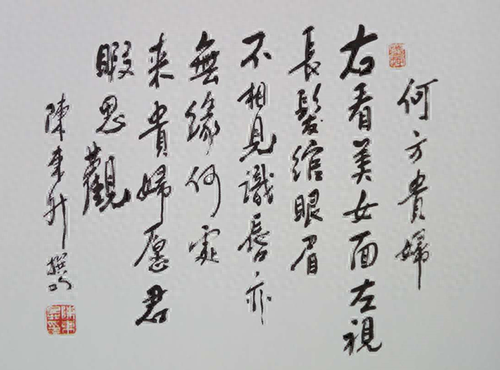 何方貴婦
右看美女面左視
長髮綰眼眉
不相見識唇亦
無緣何處
来貴婦愿君
暇思觀
陳来升撰